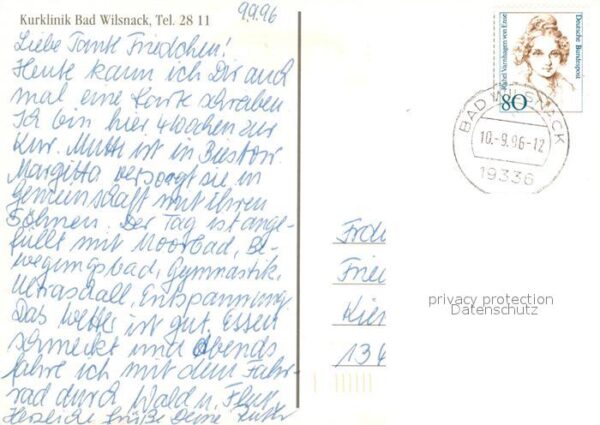 Kurklinik Bad Wilsnack, Tel. 28 11
9.9.96
Liebe Tante Friedchen!
Heute kann ich Dir auch
mal eine Karte schreiben
Ich bin hier 4 Wochen zur
Kur. Mutti ist in Biestow.
Margitta versorgt sie in
Gemeinschaft mit ihren
Söhnen. Der Tag ist ange-
füllt mit Moorbad, Be-
wegungsbad, Gymnastik,
Ultraschall, Entspannung
Das Wetter ist gut. Essen
schmeckt und Abends
fahre ich mit dem Fahr-
rad durch Wald u. Flur
Herzliche Grüße Deine
Deutsche Bundespost
Rahel Varnhagen von Ense
80
BAD WILSNACK
10.-9.96-12
19336
Frie
134
privacy protection
Datenschutz